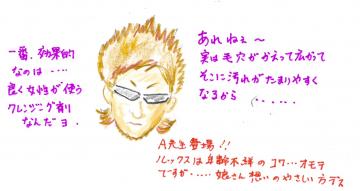 一番、効果的
なのは‥‥
良く女性が使う
クレンジング剤
なんだヨ.
あれねぇ〜
実は毛穴がかえって広がって
そこに汚れがたまりやすく
なるから ‥‥‥
A先生登場!!
ルックスは年齢不詳のコワ…オモテ
ですが‥‥‥娘さん想いのやさしい方デス